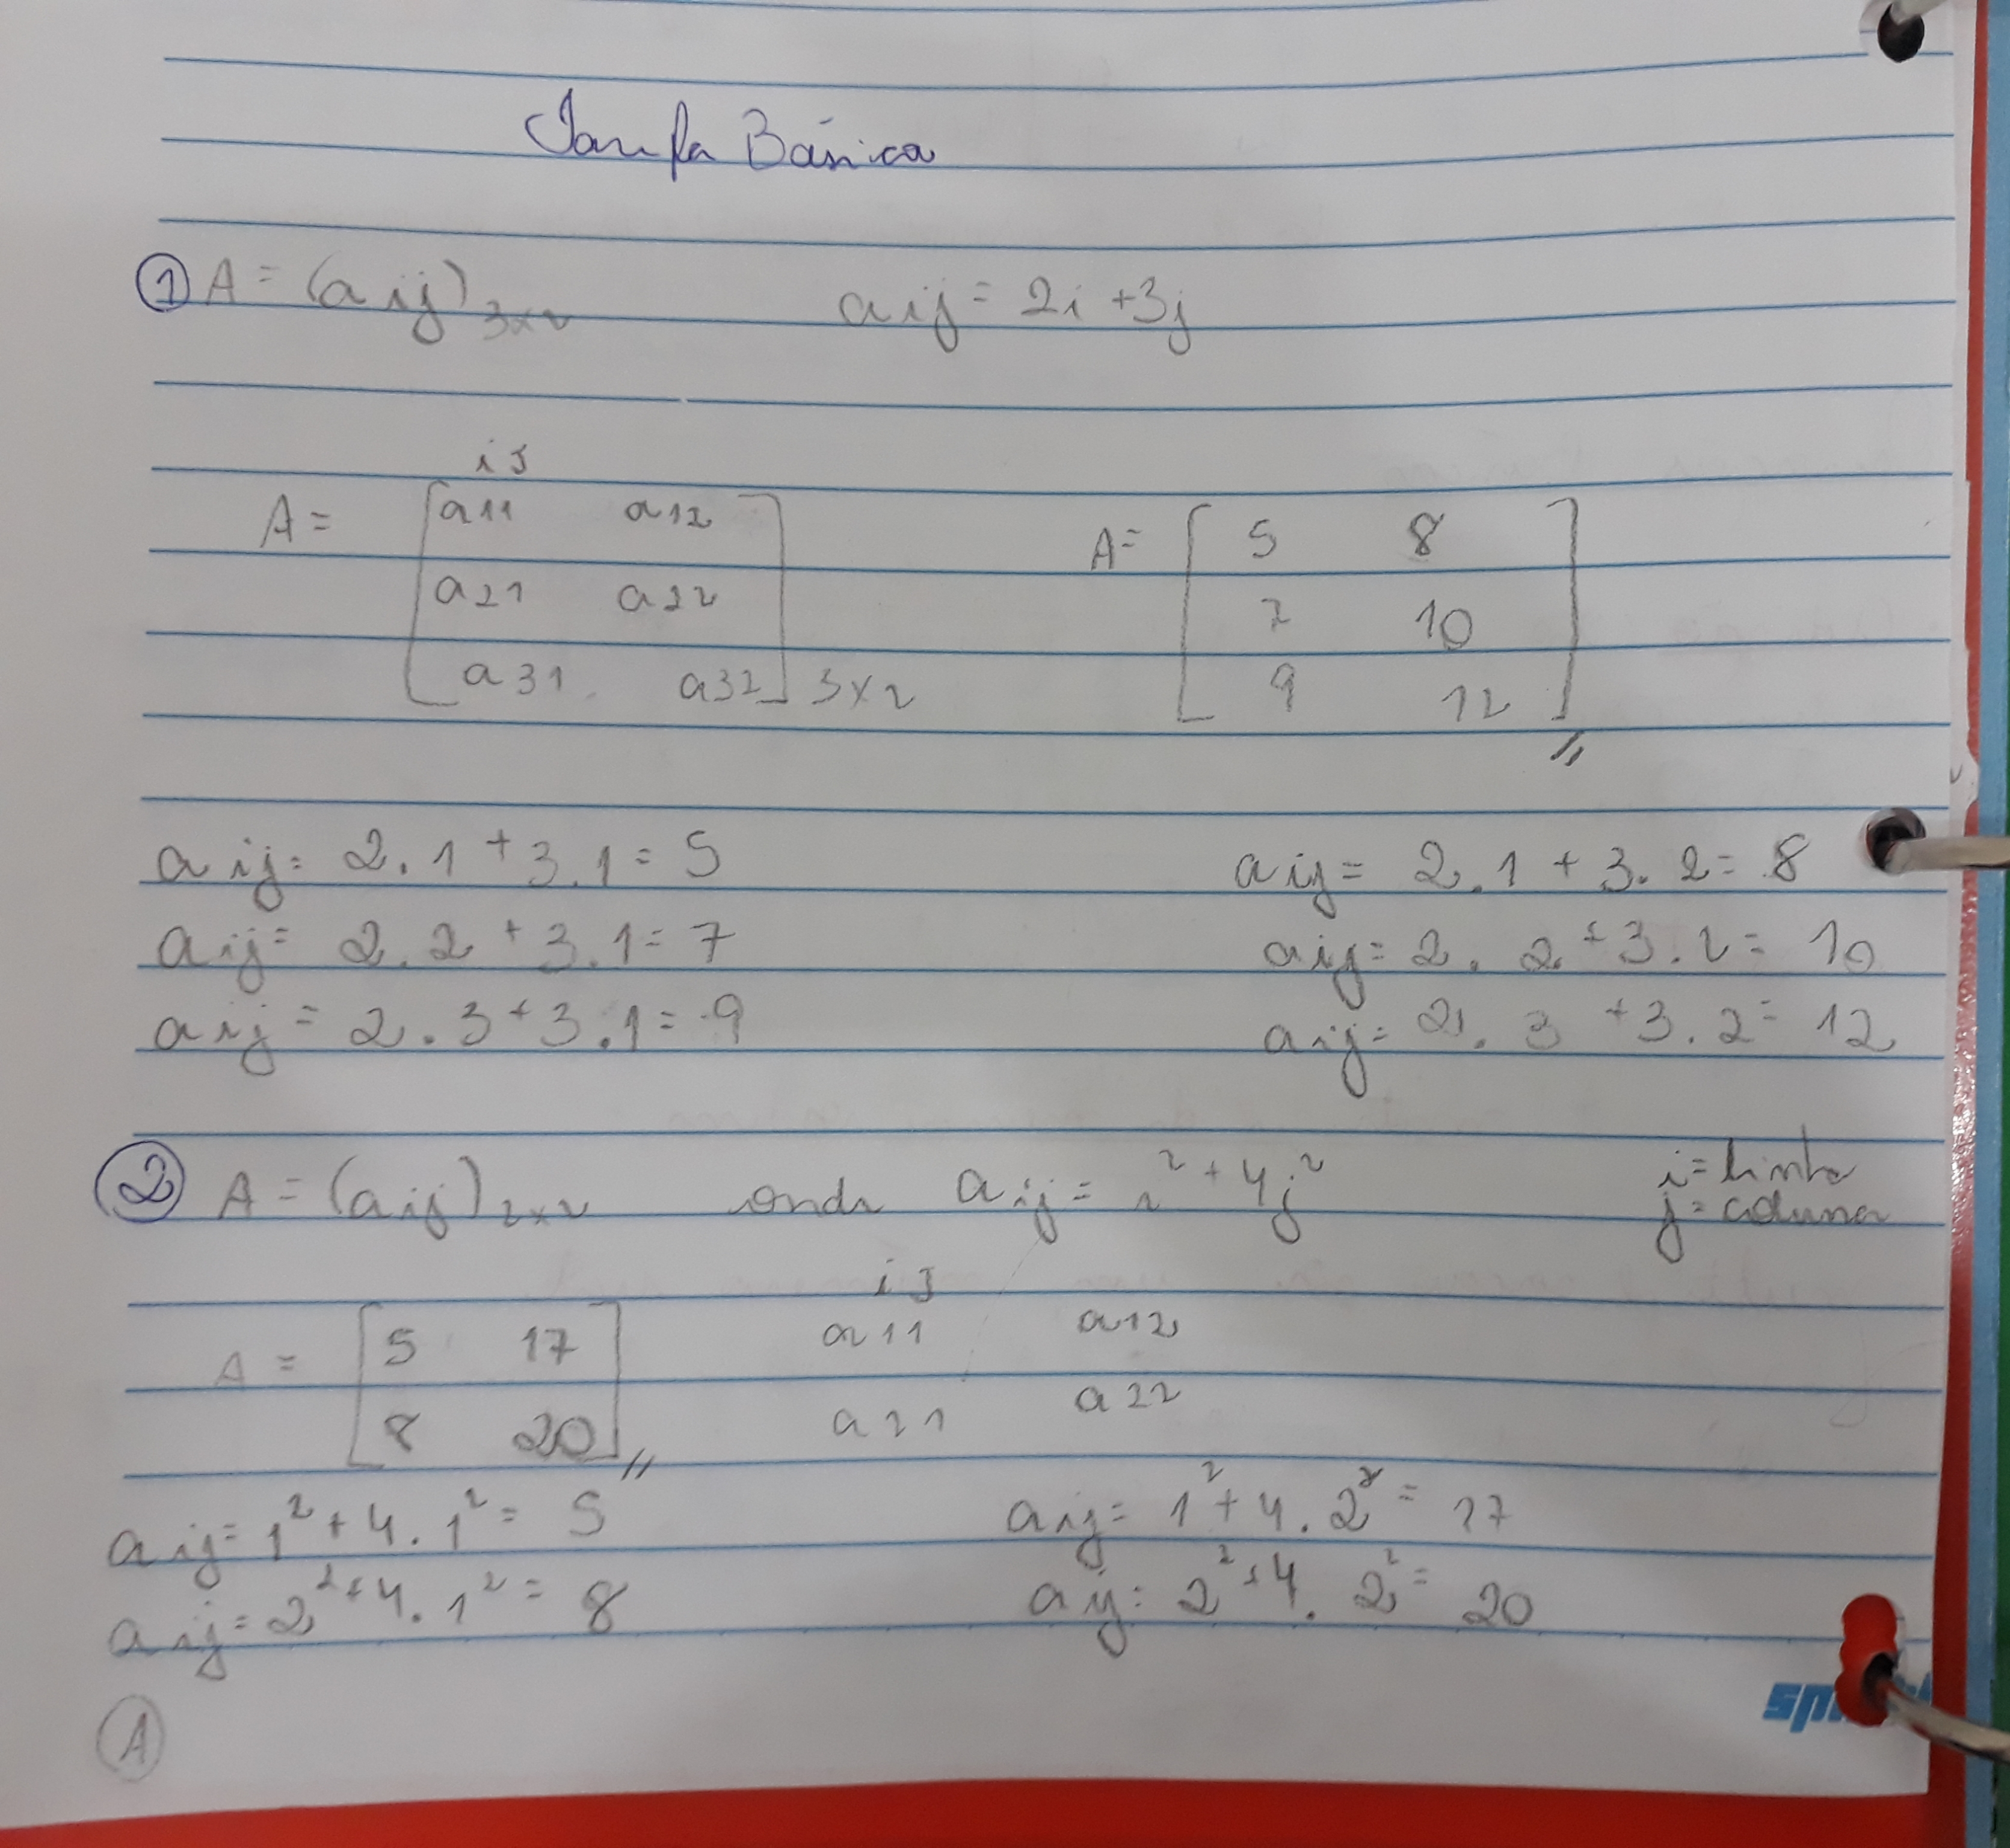 Tarefa Básica
① A = (aij)3x2 aij = 2i + 3j
i j
A = [a11 a12
a21 a22
a31 a32] 3x2
A = [5 8
7 10
9 12]
aij = 2.1 + 3.1 = 5 aij = 2.1 + 3.2 = 8
aij = 2.2 + 3.1 = 7 aij = 2.2 + 3.2 = 10
aij = 2.3 + 3.1 = 9 aij = 2.3 + 3.2 = 12
② A = (aij)2x2 onde aij = i² + 4j²
i = linha
j = coluna
i j
A = [5 17 a11 a12
8 20] a21 a22
aij = 1² + 4.1² = 5 aij = 1² + 4.2² = 17
aij = 2² + 4.1² = 8 aij = 2² + 4.2² = 20
Ⓐ